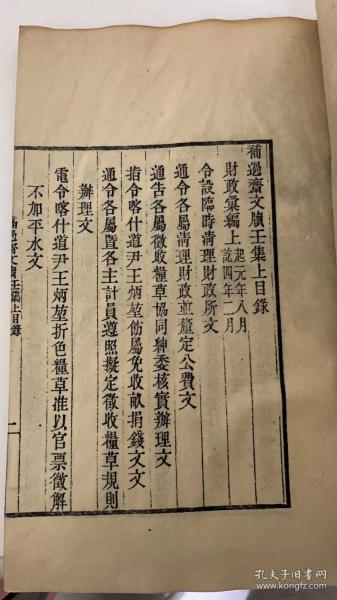 補過齋文牘壬集上目錄
財政彙編上 起元年八月 訖四年二月
令設臨時清理財政所文
通令各屬清理財政並釐定公費文
通告各屬徵收糧草協同紳委核實辦理文
指令喀什道尹王炳堃飭屬免收畝捐錢文文
通令各屬暨各主計員遵照擬定徵收糧草規則
辦理文
電令喀什道尹王炳堃折色糧草准以官票徵解
不加平水文
補過齋文牘壬集上目錄
一
孔夫子旧书网
www.kongfz.com